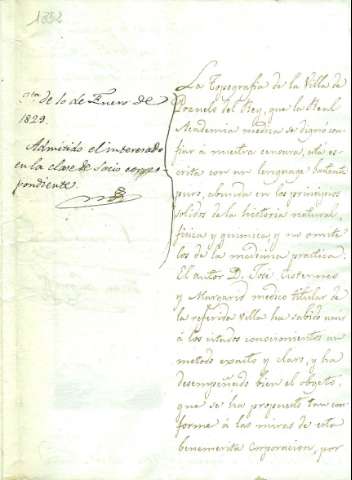 1832
de 10 de Enero de
1829.
Admitido el interesado
en la clase de Socio corres-
pondiente.
La Topografía de la Villa de
Pozuelo del Rey, que la Real
Academia medica se dignó con
fiar á nuestra censura, está es-
crita con un lenguage bastante
puro, abunda en los principios
solidos de la historia natural,
fisica y quimica, y no omite
los de la medicina practica.
El autor D. José
y medico titular de
la referida Villa ha sabido unir
á los citados conocimientos un
metodo exacto y claro, y ha
desempeñado bien el objeto,
que se ha propuesto tan con
forme á las miras de esta
benemerita Corporacion, por